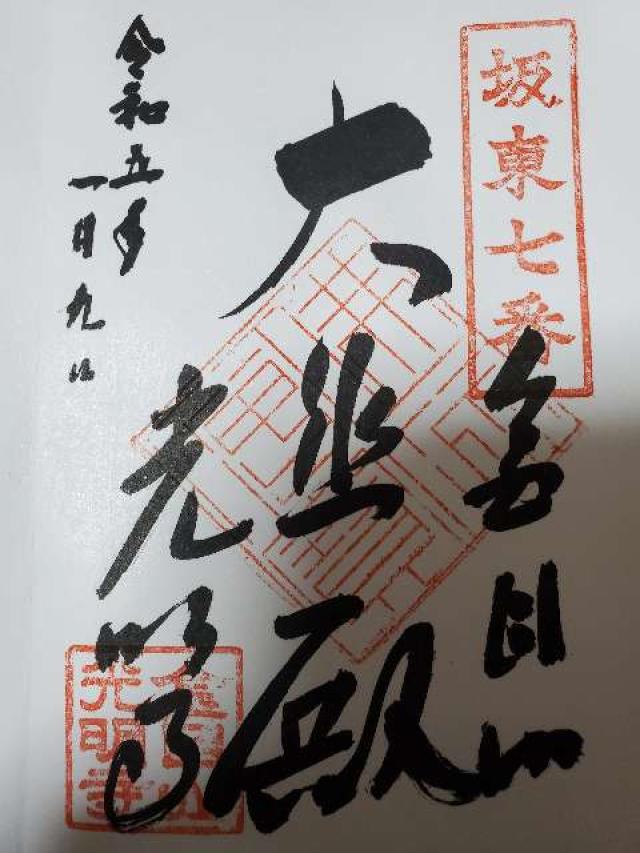 坂東七番
金目山
大悲殿
光明寺
令和五年
一月九日
金目山
光明寺